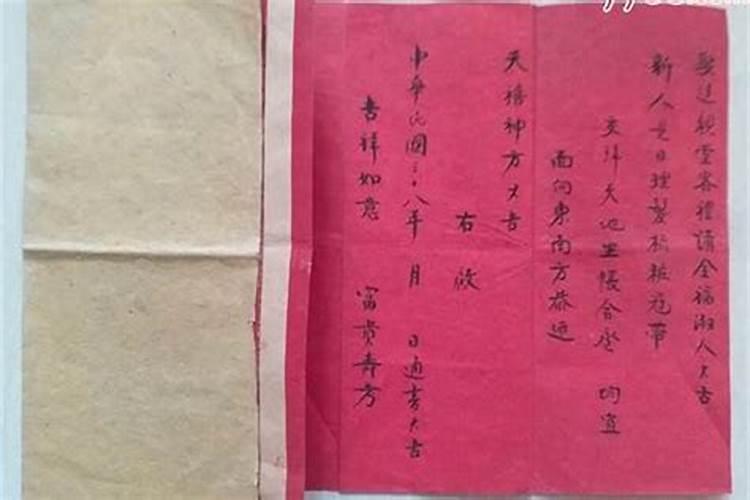 娶送親堂客禮請全福淑人大吉
新人是日理髮梳粧冠帶
交拜天地坐帳合巹 均宜
面向東南方恭迎
天禧神方大吉
右啟
中華民國三十八年 月 日適吉大吉
吉祥如意 富貴壽方